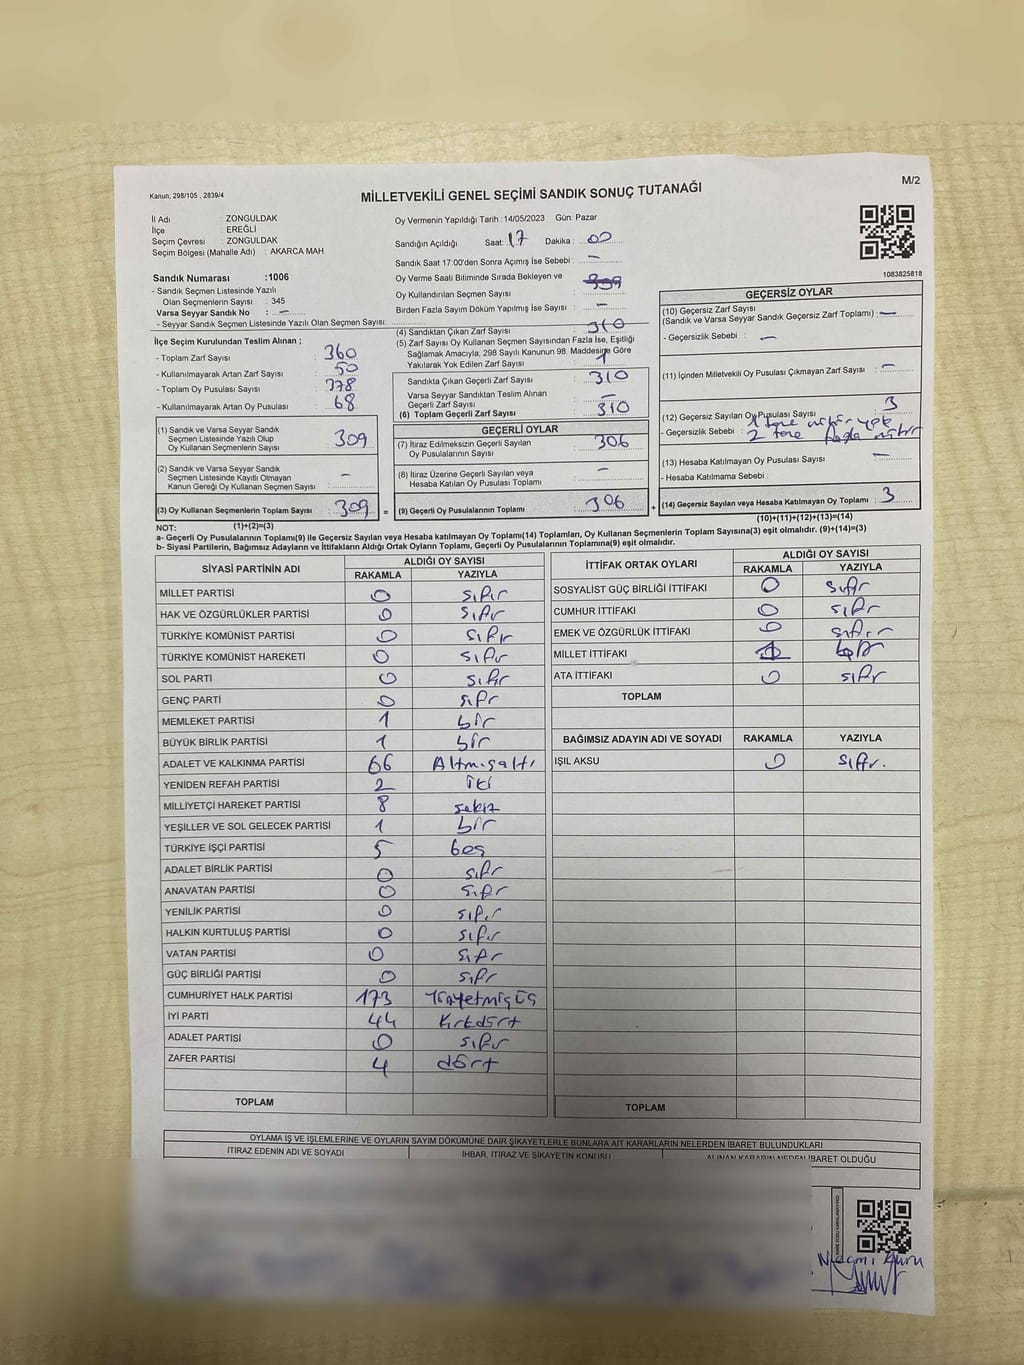 M/2
Kanun, 298/105 , 2839/4
MİLLETVEKİLİ GENEL SEÇİMİ SANDIK SONUÇ TUTANAĞI
İl Adı : ZONGULDAK
İlçe : EREĞLİ
Seçim Çevresi : ZONGULDAK
Seçim Bölgesi (Mahalle Adı) : AKARCA MAH.
Sandık Numarası :1006
- Sandık Seçmen Listesinde Yazılı
Olan Seçmenlerin Sayısı : 345
Varsa Seyyar Sandık No : —
- Seyyar Sandık Seçmen Listesinde Yazılı Olan Seçmen Sayısı:
Oy Vermenin Yapıldığı Tarih :14/05/2023 Gün: Pazar
Sandığın Açıldığı Saat: 17 Dakika : 00
Sandık Saat 17:00'den Sonra Açılmış İse Sebebi : —
Oy Verme Saati Bitiminde Sırada Bekleyen ve
Oy Kullandırılan Seçmen Sayısı :
Birden Fazla Sayım Döküm Yapılmış İse Sayısı : —
1083825818
İlçe Seçim Kurulundan Teslim Alınan ;
- Toplam Zarf Sayısı : 360
- Kullanılmayarak Artan Zarf Sayısı : 50
- Toplam Oy Pusulası Sayısı : 378
- Kullanılmayarak Artan Oy Pusulası : 68
(1) Sandık ve Varsa Seyyar Sandık
Seçmen Listesinde Yazılı Olup
Oy Kullanan Seçmenlerin Sayısı : 309
(2) Sandık ve Varsa Seyyar Sandık
Seçmen Listesinde Kayıtlı Olmayan
Kanun Gereği Oy Kullanan Seçmen Sayısı : —
(3) Oy Kullanan Seçmenlerin Toplam Sayısı : 309 =
(1)+(2)=(3)
(4) Sandıktan Çıkan Zarf Sayısı : 310
(5) Zarf Sayısı Oy Kullanan Seçmen Sayısından Fazla İse, Eşitliği
Sağlamak Amacıyla, 298 Sayılı Kanunun 98. Maddesine Göre
Yakılarak Yok Edilen Zarf Sayısı : 1
Sandıkta Çıkan Geçerli Zarf Sayısı : 310
Varsa Seyyar Sandıktan Teslim Alınan
Geçerli Zarf Sayısı : —
(6) Toplam Geçerli Zarf Sayısı : 310
GEÇERLİ OYLAR
(7) İtiraz Edilmeksizin Geçerli Sayılan
Oy Pusulalarının Sayısı : 306
(8) İtiraz Üzerine Geçerli Sayılan veya
Hesaba Katılan Oy Pusulası Toplamı : —
(9) Geçerli Oy Pusulalarının Toplamı : 306 +
GEÇERSİZ OYLAR
(10) Geçersiz Zarf Sayısı
(Sandık ve Varsa Seyyar Sandık Geçersiz Zarf Toplamı) : —
- Geçersizlik Sebebi : —
(11) İçinden Milletvekili Oy Pusulası Çıkmayan Zarf Sayısı : —
(12) Geçersiz Sayılan Oy Pusulası Sayısı : 3
- Geçersizlik Sebebi : 1 tane mühür yok
2 tane fazla mühür
(13) Hesaba Katılmayan Oy Pusulası Sayısı : —
- Hesaba Katılmama Sebebi :
(14) Geçersiz Sayılan veya Hesaba Katılmayan Oy Toplamı : 3
(10)+(11)+(12)+(13)=(14)
NOT:
a- Geçerli Oy Pusulalarının Toplamı(9) ile Geçersiz Sayılan veya Hesaba katılmayan Oy Toplamı(14) Toplamları, Oy Kullanan Seçmenlerin Toplam Sayısına(3) eşit olmalıdır. (9)+(14)=(3)
b- Siyasi Partilerin, Bağımsız Adayların ve İttifakların Aldığı Ortak Oyların Toplamı, Geçerli Oy Pusulalarının Toplamına(9) eşit olmalıdır.
SİYASİ PARTİNİN ADI ALDIĞI OY SAYISI
RAKAMLA YAZIYLA
MİLLET PARTİSİ 0 sıfır
HAK VE ÖZGÜRLÜKLER PARTİSİ 0 sıfır
TÜRKİYE KOMÜNİST PARTİSİ 0 sıfır
TÜRKİYE KOMÜNİST HAREKETİ 0 sıfır
SOL PARTİ 0 sıfır
GENÇ PARTİ 0 sıfır
MEMLEKET PARTİSİ 1 bir
BÜYÜK BİRLİK PARTİSİ 1 bir
ADALET VE KALKINMA PARTİSİ 66 Altmışaltı
YENİDEN REFAH PARTİSİ 2 iki
MİLLİYETÇİ HAREKET PARTİSİ 8 sekiz
YEŞİLLER VE SOL GELECEK PARTİSİ 1 bir
TÜRKİYE İŞÇİ PARTİSİ 5 beş
ADALET BİRLİK PARTİSİ 0 sıfır
ANAVATAN PARTİSİ 0 sıfır
YENİLİK PARTİSİ 0 sıfır
HALKIN KURTULUŞ PARTİSİ 0 sıfır
VATAN PARTİSİ 0 sıfır
GÜÇ BİRLİĞİ PARTİSİ 0 sıfır
CUMHURİYET HALK PARTİSİ 173 Yüzyetmişüç
İYİ PARTİ 44 Kırkdört
ADALET PARTİSİ 0 sıfır
ZAFER PARTİSİ 4 dört
TOPLAM
İTTİFAK ORTAK OYLARI ALDIĞI OY SAYISI
RAKAMLA YAZIYLA
SOSYALİST GÜÇ BİRLİĞİ İTTİFAKI 0 sıfır
CUMHUR İTTİFAKI 0 sıfır
EMEK VE ÖZGÜRLÜK İTTİFAKI 0 sıfır
MİLLET İTTİFAKI 1
ATA İTTİFAKI 0 sıfır
TOPLAM
BAĞIMSIZ ADAYIN ADI VE SOYADI RAKAMLA YAZIYLA
IŞIL AKSU 0 sıfır.
TOPLAM
OYLAMA İŞ VE İŞLEMLERİNE VE OYLARIN SAYIM DÖKÜMÜNE DAİR ŞİKAYETLERLE BUNLARA AİT KARARLARIN NELERDEN İBARET BULUNDUKLARI
İTİRAZ EDENİN ADI VE SOYADI İHBAR, İTİRAZ VE ŞİKAYETİN KONUSU ALINAN KARARIN NEDEN İBARET OLDUĞU
Necmi